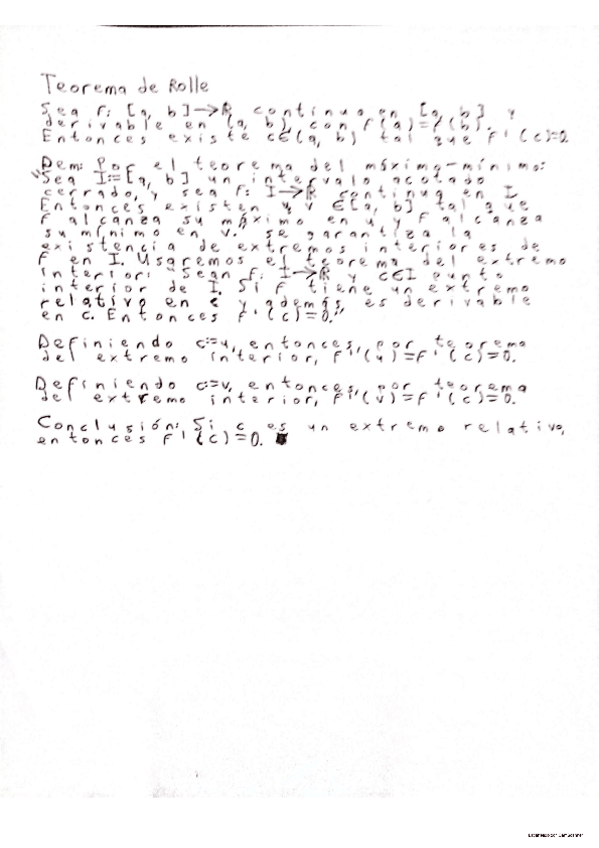 Teorema de Rolle
Sea f: [a, b]→ℝ continua en [a, b] y
derivable en (a, b), con f(a)=f(b).
Entonces existe c∈(a, b) tal que f'(c)=0.
Dem: Por el teorema del máximo-mínimo:
"Sea I:=[a, b] un intervalo acotado
cerrado, y sea f: I→ℝ continua en I.
Entonces existen u, v ∈[a, b] tal que
f alcanza su máximo en u y f alcanza
su mínimo en v." se garantiza la
existencia de extremos interiores de
f en I. Usaremos el teorema del extremo
interior: "Sean f: I→ℝ y c∈I punto
interior de I. Si f tiene un extremo
relativo en c y además es derivable
en c. Entonces f'(c)=0."
Definiendo c:=u, entonces, por teorema
del extremo interior, f'(u)=f'(c)=0.
Definiendo c:=v, entonces, por teorema
del extremo interior, f'(v)=f'(c)=0.
Conclusión: Si c es un extremo relativo,
entonces f'(c)=0. ■